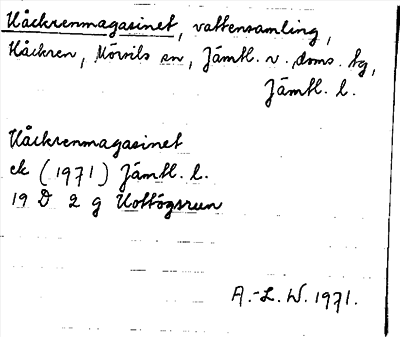 Håckrenmagasinet, vattensamling,
Håckren, Mörsils sn, Jämtl. v. doms. tg,
Jämtl. l.
Håckrenmagasinet
ek (1971) Jämtl. l.
19 D 2 g Hottögsrun
A.-L. W. 1971.